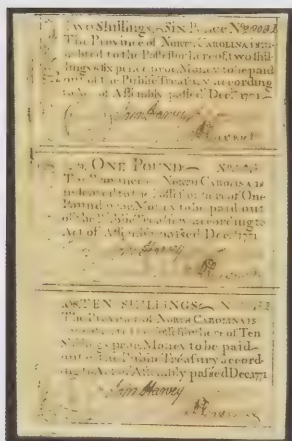 TWO Shillings & Six Pence No
The Province of NORTH CAROLINA is
indebted to the Possessor hereof, two shil-
lings & six pence proc. Money to be paid
out of the Public Treasury according
to Act of Assembly passed Decr. 1771
John Harvey
ONE POUND No
The Province of NORTH CAROLINA IS
indebted to the Possessor hereof One
Pound proc. Money to be paid out
of the Public Treasury according to
Act of Assembly passed Decr. 1771
Harvey
TEN SHILLINGS N
The Province of NORTH CAROLINA IS
indebted to the Possessor hereof Ten
Shillings proc. Money to be paid
out of the Public Treasury accord-
ing to Act of Assembly passed Dec. 1771
John Harvey